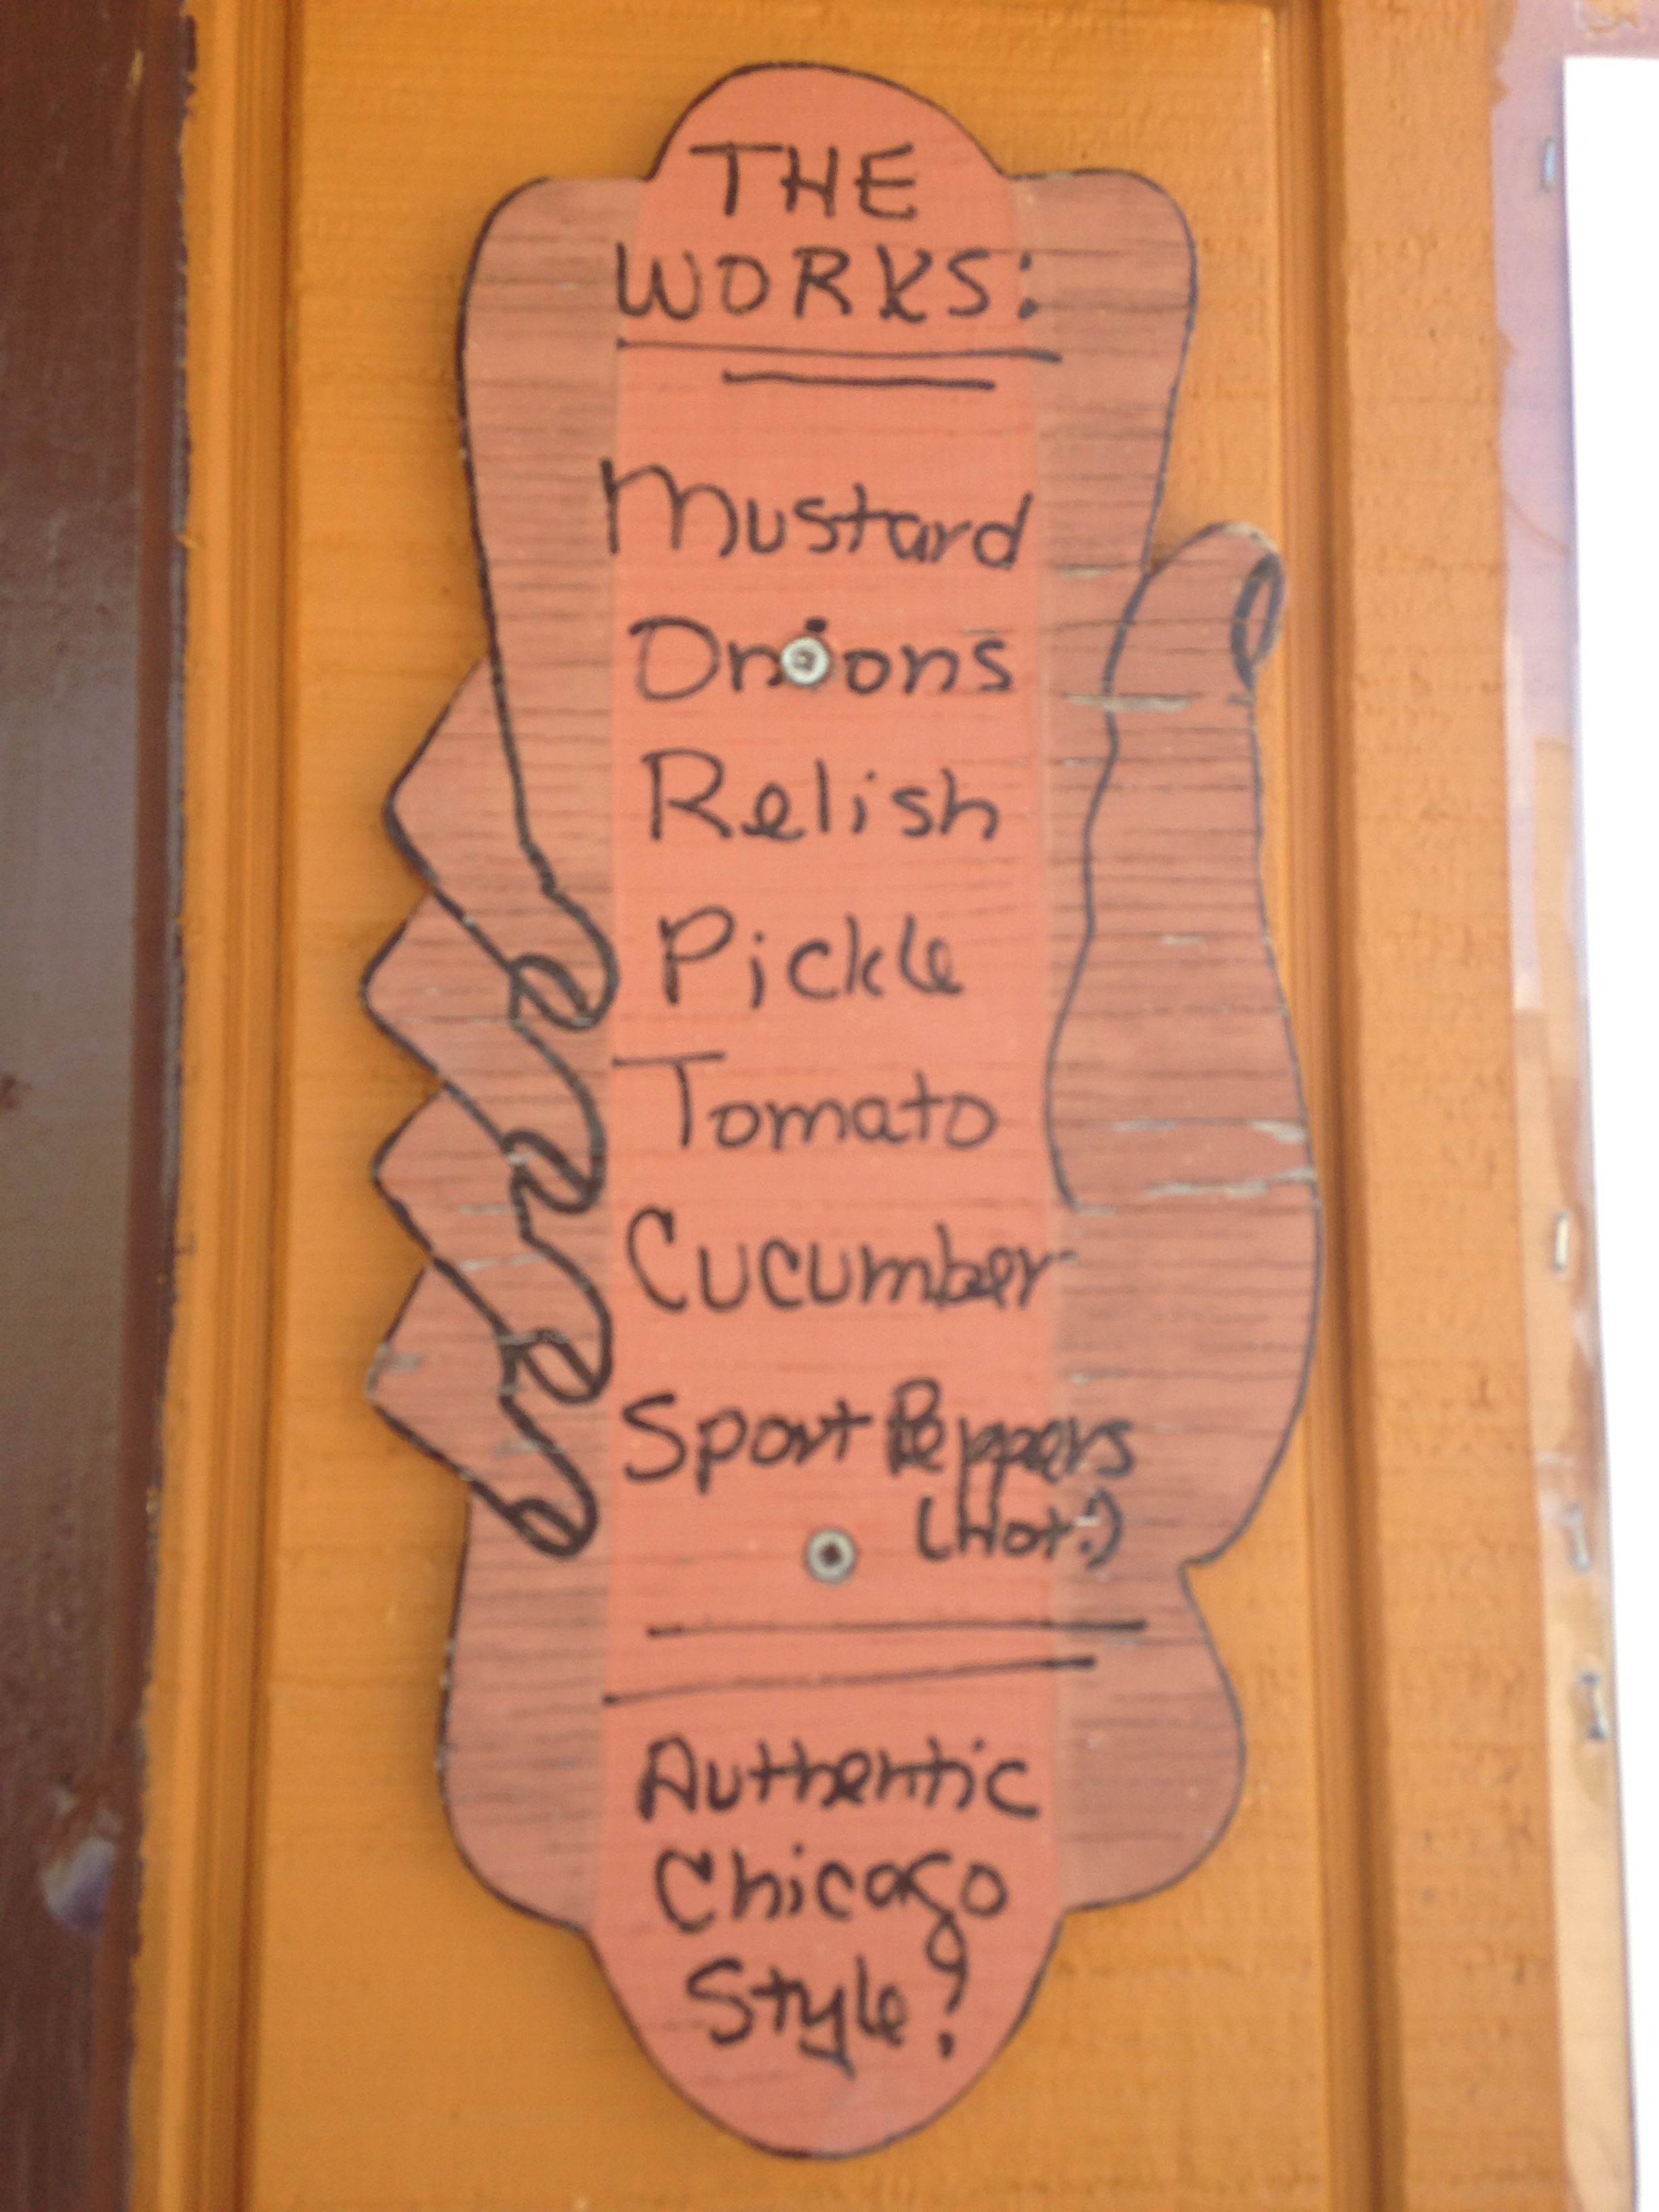 THE
WORKS:
Mustard
Onions
Relish
Pickle
Tomato
Cucumber
Sport Peppers
(Hot!)
Authentic
Chicago
Style!